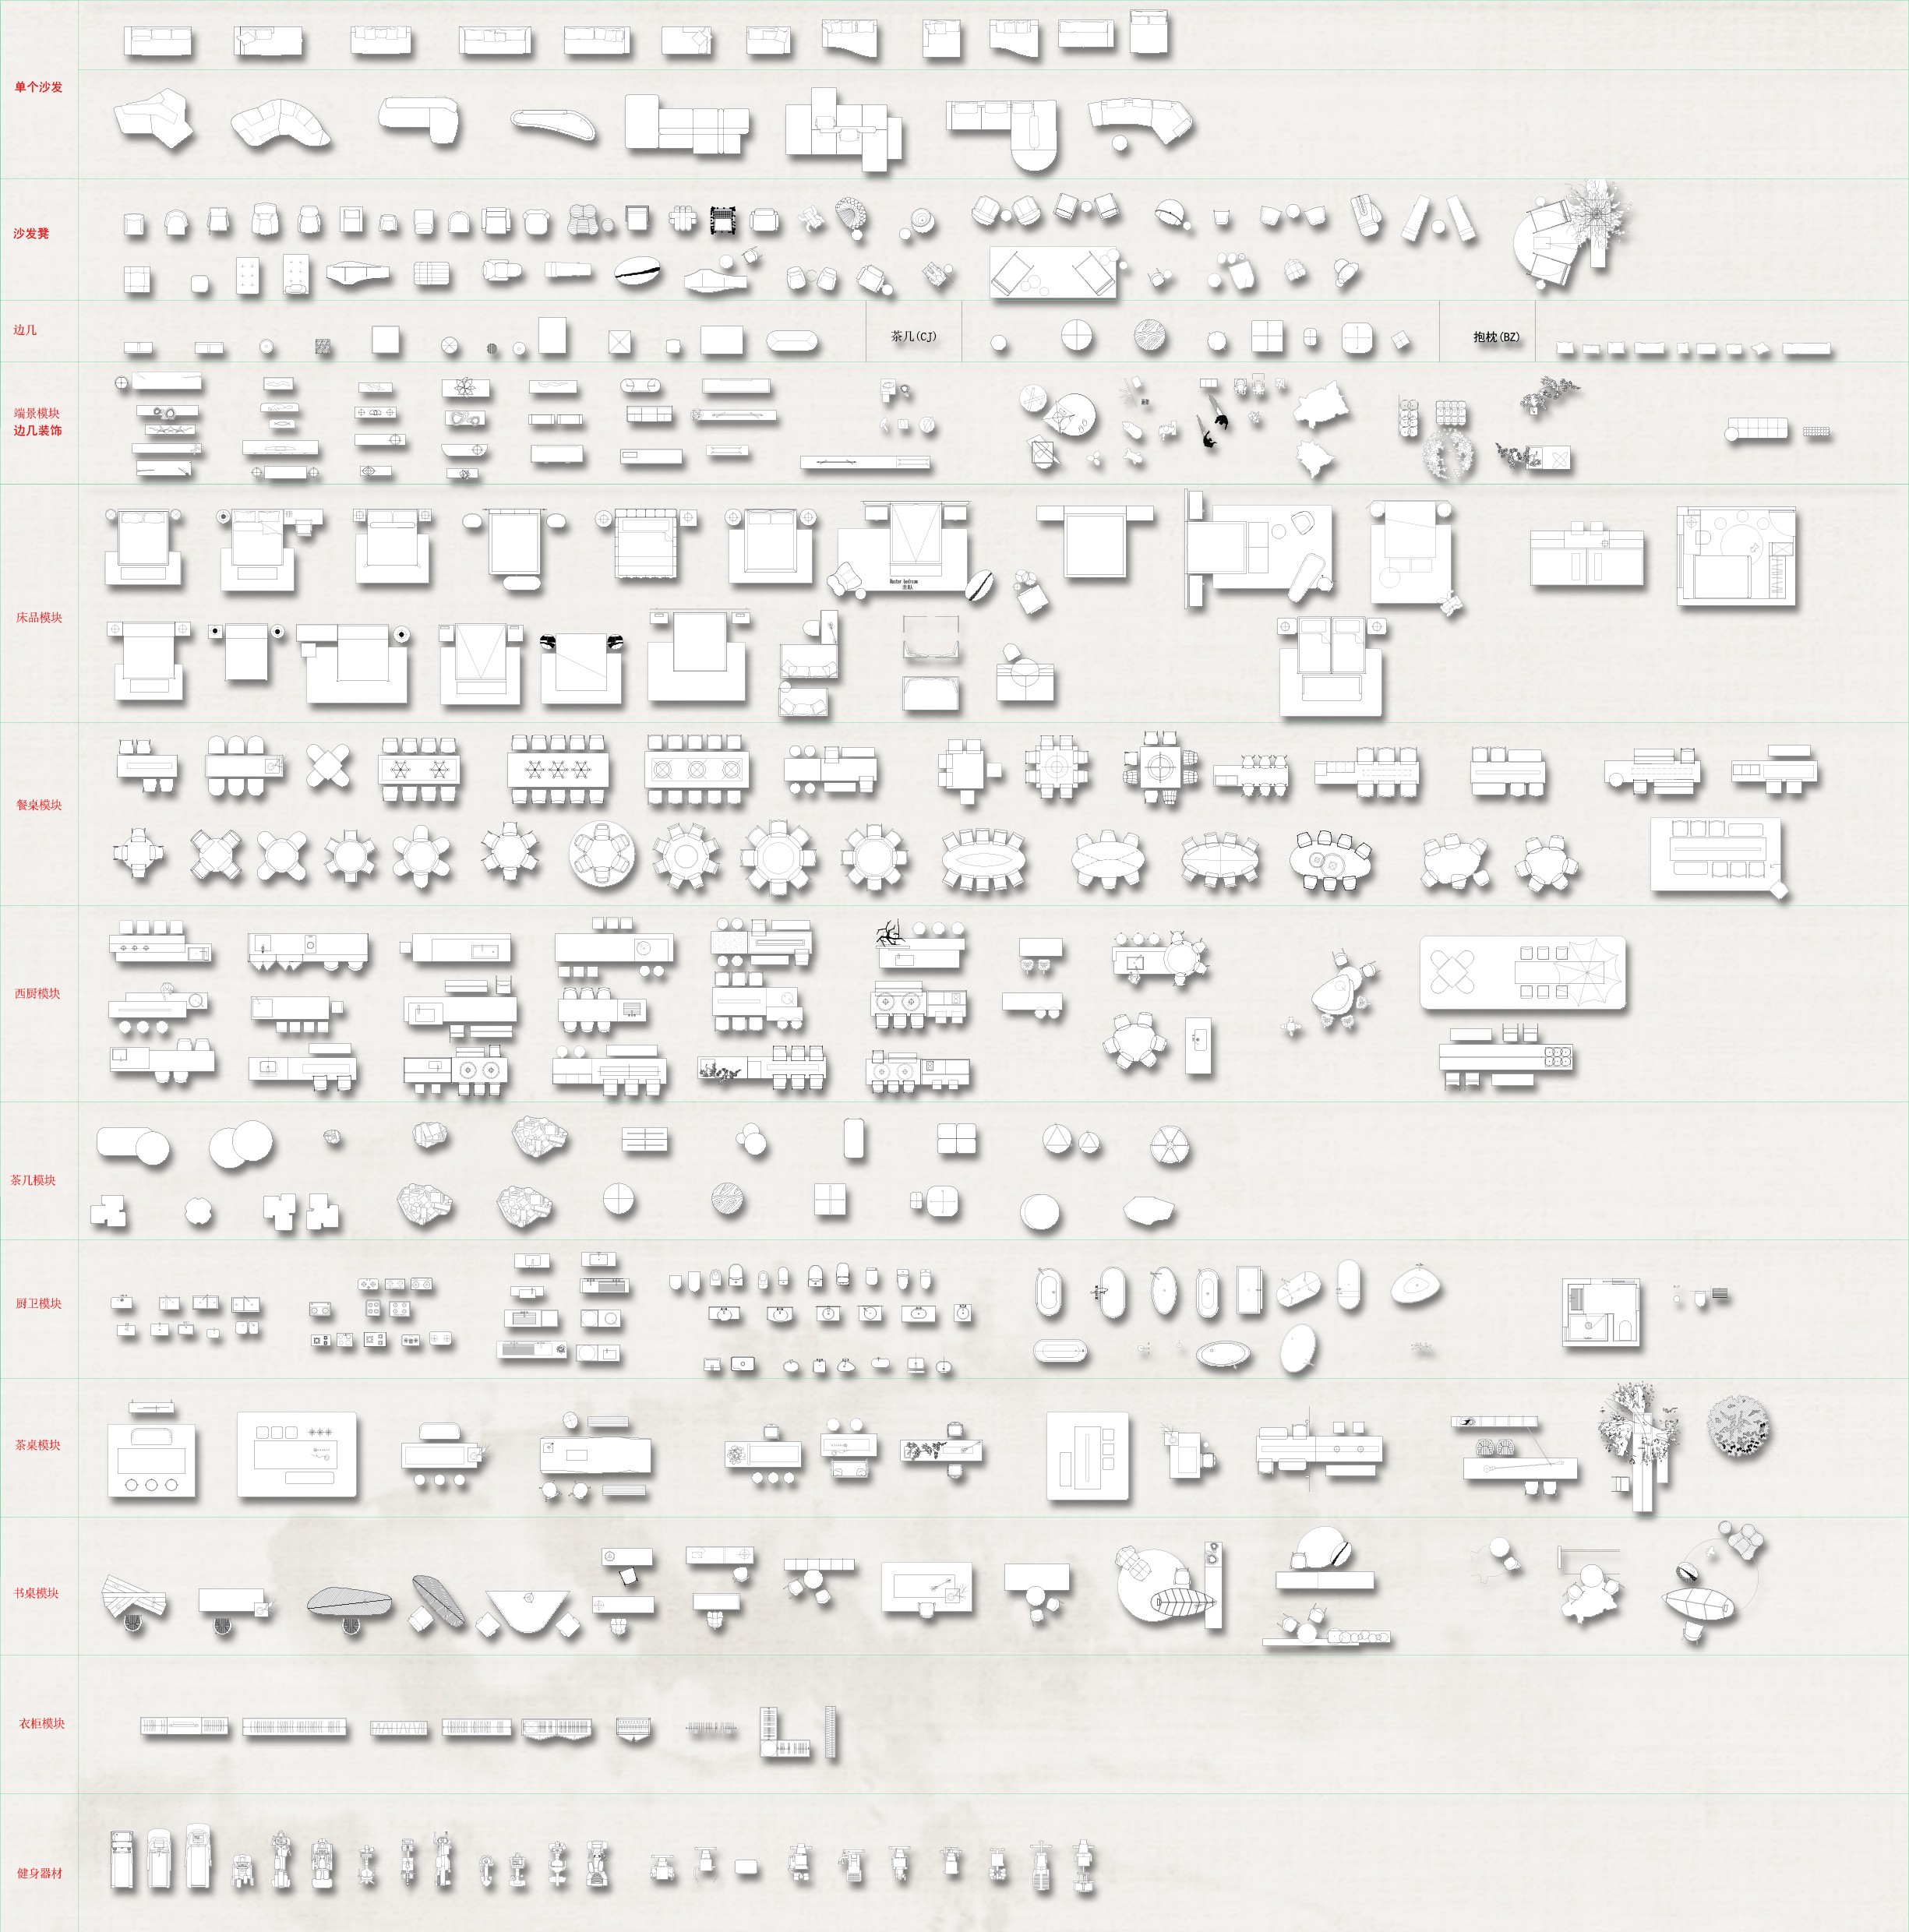 单个沙发
沙发凳
边几
茶几(CJ)
抱枕(BZ)
端景模块
边几装饰
床品模块
Master bedroom
餐桌模块
西厨模块
茶几模块
厨卫模块
茶桌模块
书桌模块
衣柜模块
健身器材